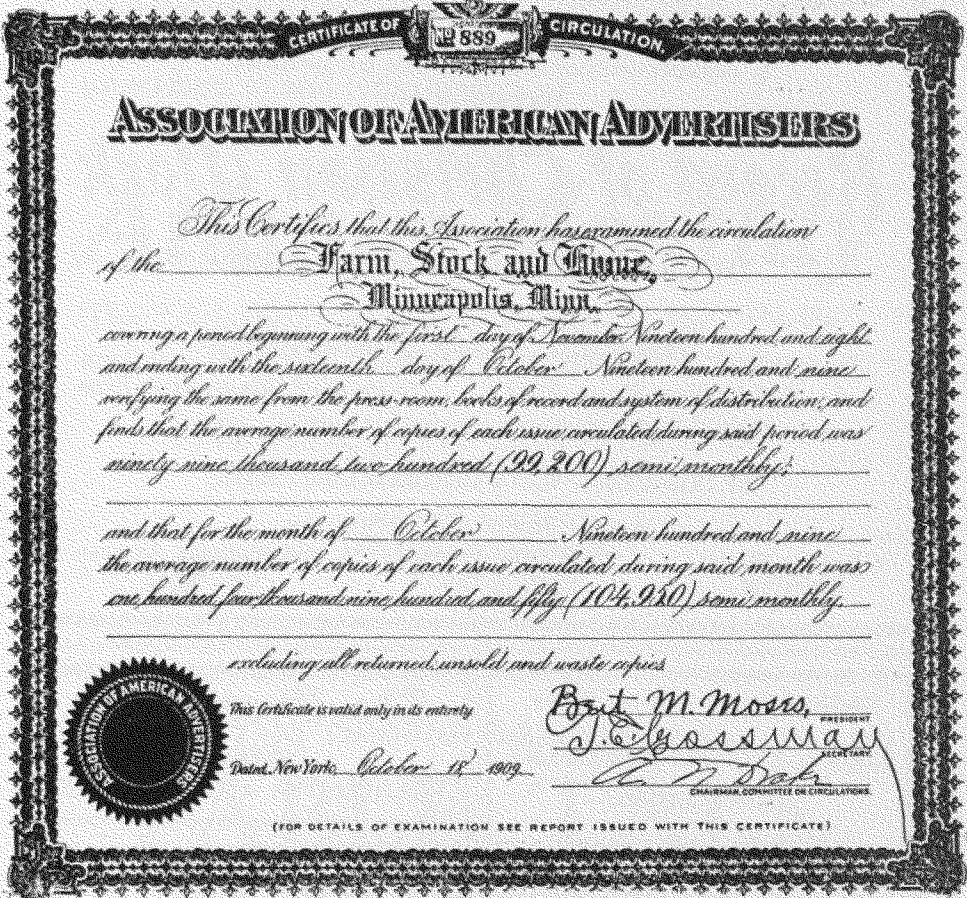 CERTIFICATE OF No 889 CIRCULATION.
ASSOCIATION OF AMERICAN ADVERTISERS
This Certifies that this Association has examined the circulation
of the Farm, Stock and Home,
Minneapolis, Minn.
covering a period beginning with the first day of November Nineteen hundred and eight
and ending with the sixteenth day of October Nineteen hundred and nine
verifying the same from the press-room, books of record and system of distribution, and
finds that the average number of copies of each issue circulated during said period was
ninety nine thousand two hundred (99,200) semi monthly;
and that for the month of October Nineteen hundred and nine
the average number of copies of each issue circulated during said month was
one hundred four thousand nine hundred and fifty (104,950) semi monthly.
excluding all returned, unsold and waste copies
ASSOCIATION OF AMERICAN ADVERTISERS
This Certificate is valid only in its entirety
Dated, New York, October 18, 1909
Bert M. Moses,
PRESIDENT
SECRETARY
CHAIRMAN, COMMITTEE ON CIRCULATIONS.
(FOR DETAILS OF EXAMINATION SEE REPORT ISSUED WITH THIS CERTIFICATE)